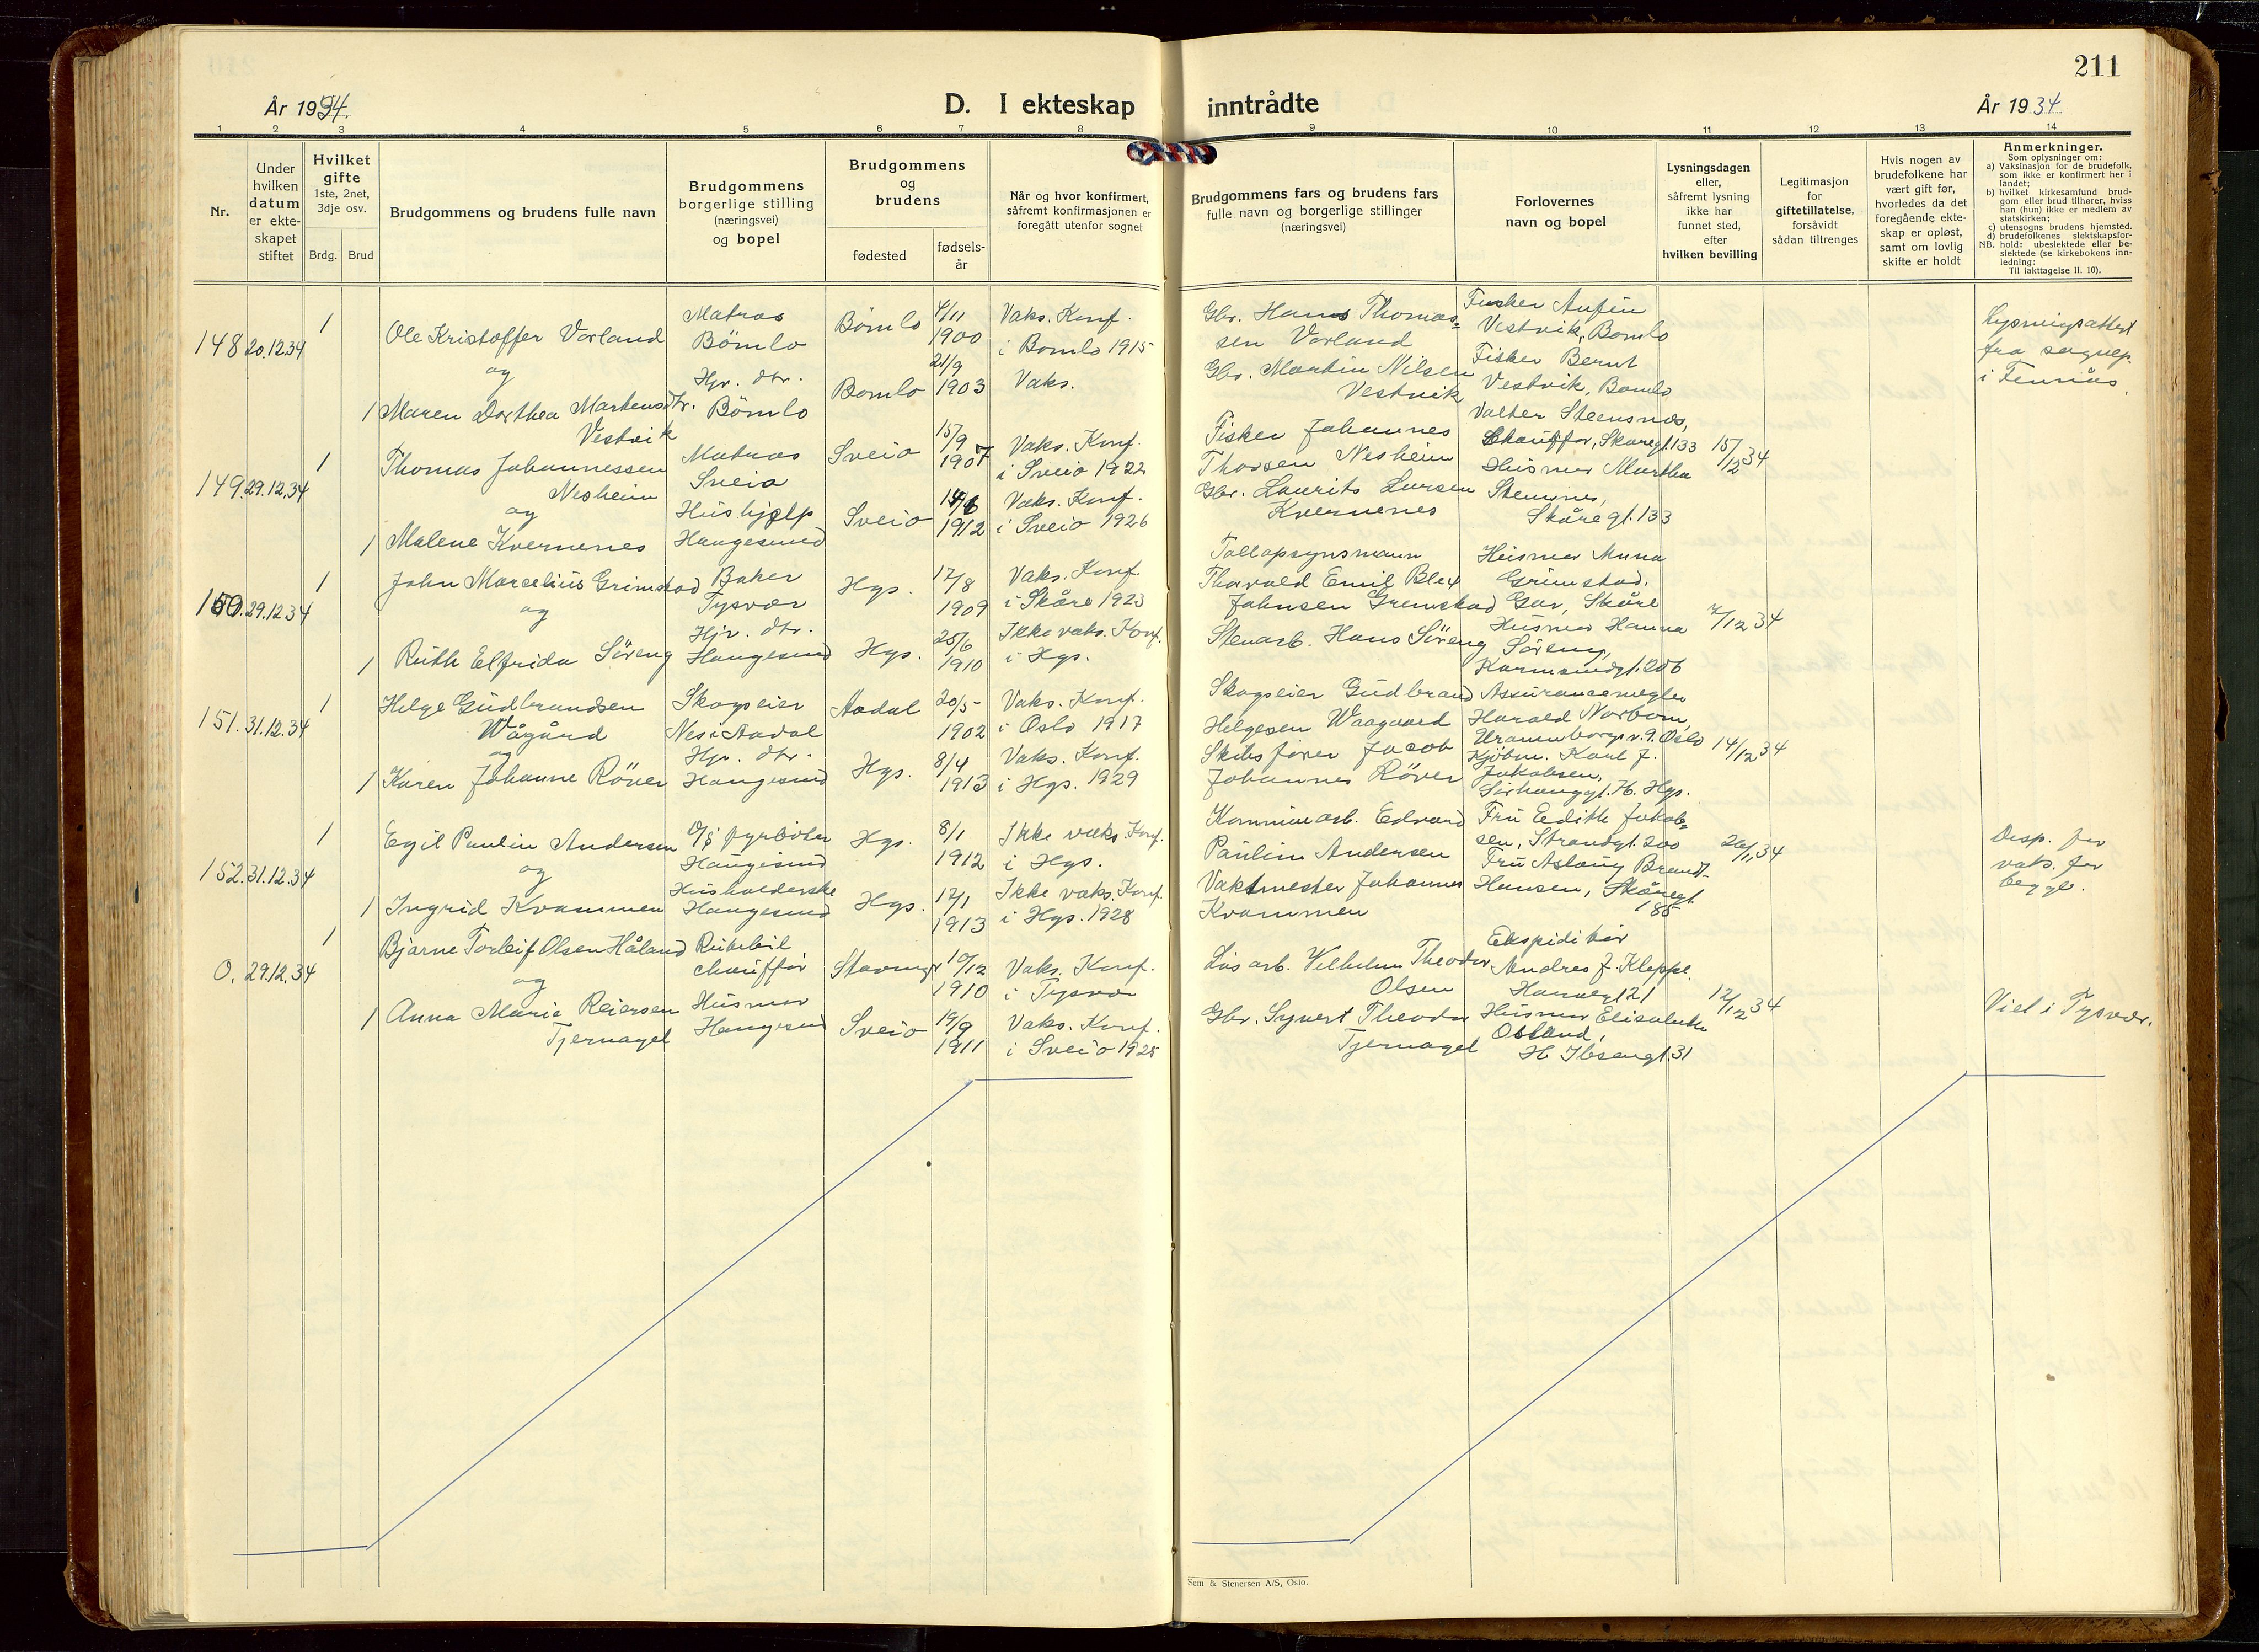 211
År 1934.
D. I ekteskap inntrådte
År 1934
1 2 3 4 5 6 7 8 9 10 11 12 13 14
Nr.
Under
hvilken
datum
er ekte-
skapet
stiftet
Hvilket
gifte
1ste, 2net,
3dje osv.
Brdg. Brud
Brudgommens og brudens fulle navn
Brudgommens
borgerlige stilling
(næringsvei)
og bopel
Brudgommens
og
brudens
fødested
fødsels-
år
Når og hvor konfirmert,
såfremt konfirmasjonen er
foregått utenfor sognet
Brudgommens fars og brudens fars
fulle navn og borgerlige stillinger
(næringsvei)
Forlovernes
navn og bopel
Lysningsdagen
eller,
såfremt lysning
ikke har
funnet sted,
efter
hvilken bevilling
Legitimasjon
for
giftetillatelse,
forsåvidt
sådan tiltrenges
Hvis nogen av
brudefolkene har
vært gift før,
hvorledes da det
foregående ekte-
skap er opløst,
samt om lovlig
skifte er holdt
Anmerkninger.
Som oplysninger om:
a) Vaksinasjon for de brudefolk,
som ikke er konfirmert her i
landet;
b) hvilket kirkesamfund brud-
gom eller brud tilhører, hviss
han (hun) ikke er medlem av
statskirken;
c) utensogns brudens hjemsted.
d) brudefolkenes slektskapsfor-
NB. hold: ubeslektede eller be-
slektede (se kirkebokens inn-
ledning:
Til iakttagelse II. 10).
148 20.12.34
1
Ole Kristoffer Vorland
og
1 Maren Dorthea Martensdtr.
Vestvik
Matros
Bömlo
Hjv. dtr.
Bömlo
Bömlo
Bomlo
4/11
1900
21/9
1903
Vaks. Konf.
i Bomlo 1915
Vaks.
Gbr. Hans Thomas-
sen Vorland
Gbr. Martin Nilsen
Vestvik
Fisker Anfin
Vestvik, Bomlo
Fisker Bernt
Vestvik, Bomlo
Lysningsattest
fra sognep.
i Finnås
149. 29.12.34
1
Thomas Johannessen
Nesheim
og
1 Malene Kvernenes
Matros
Sveio
Hushjelp
Haugesund
Sveio
Sveio
15/9
1907
14/6
1912
Vaks. Konf.
i Sveio 1922
Vaks. Konf.
i Sveio 1926
Fisker Johannes
Thorsen Nesheim
Gbr. Laurits Larsen
Kvernenes
Valter Steensnes,
Chauffør, Skåregt. 133
Husmor Martha
Stemnes,
Skåregt. 133
15/12 34
150. 29.12.34
1
John Marcelius Grimstad
og
1 Ruth Elfrida Søreng
Baker
Tysvær
Hjv. dtr.
Haugesund
Hgs.
Hgs.
17/8
1909
25/6
1910
Vaks. Konf.
i Skåre 1923
Ikke vaks. Konf.
i Hgs.
Tollopsynsmann
Thorvald Emil Blex
Johnsen Grimstad
Stenarb. Hans Søreng
Husmor Anna
Grimstad,
Gar, Skåre
Husmor Hanna
Søreng,
Karmsundgt. 206
7/12 34
151. 31.12.34
1
Helge Gudbrandsen
Wågård
og
1 Karen Johanne Röver
Skogseier
Nes i Aadal
Hjv. dtr.
Haugesund
Aadal
Hgs.
20/5
1902
8/4
1913
Vaks. Konf.
i Oslo 1917
Vaks. Konf.
i Hgs. 1929
Skogseier Gudbrand
Helgesen Waagaard
Skibsfører Jacob
Johannes Röver
Assurancemegler
Harald Norbom,
Uranienborgv. 9. Oslo
Kjøbm. Karl J.
Jakobsen,
Sørhauggt. 76. Hgs.
14/12 34
152. 31.12.34
1
Egil Paulin Andersen
og
1 Ingrid Kvammen
D/s fyrbøter
Haugesund
Husholderske
Haugesund
Hgs.
Hgs.
8/1
1912
17/1
1913
Ikke vaks. Konf.
i Hgs.
Ikke vaks. Konf.
i Hgs. 1928
Kommunearb. Edvard
Paulin Andersen
Vaktmester Johannes
Kvammen
Fru Edith Jakob-
sen, Strandgt. 200
Fru Aslaug Brandt-
Hansen, Skåregt.
185
26/11 34
Disp. for
vaks. for
begge.
0. 29.12.34
1
Bjarne Torleif Olsen Håland
og
1 Anna Marie Reiersen
Tjernagel
Rutebil
chauffør
Husmor
Haugesund
Stavanger
Sveio
10/12
1910
19/9
1911
Vaks. Konf.
i Tysvær
Vaks. Konf.
i Sveio 1925
Løsarb. Vilhelm Theodor
Olsen
Gbr. Syvert Theodor
Tjernagel
Ekspeditør
Andres J. Kleppe,
Haralgt 121
Husmor Elisabeth
Ostland,
H. Ibsengt. 31
12/12 34
Viet i Tysvær.
Sem & Stenersen A/S, Oslo.